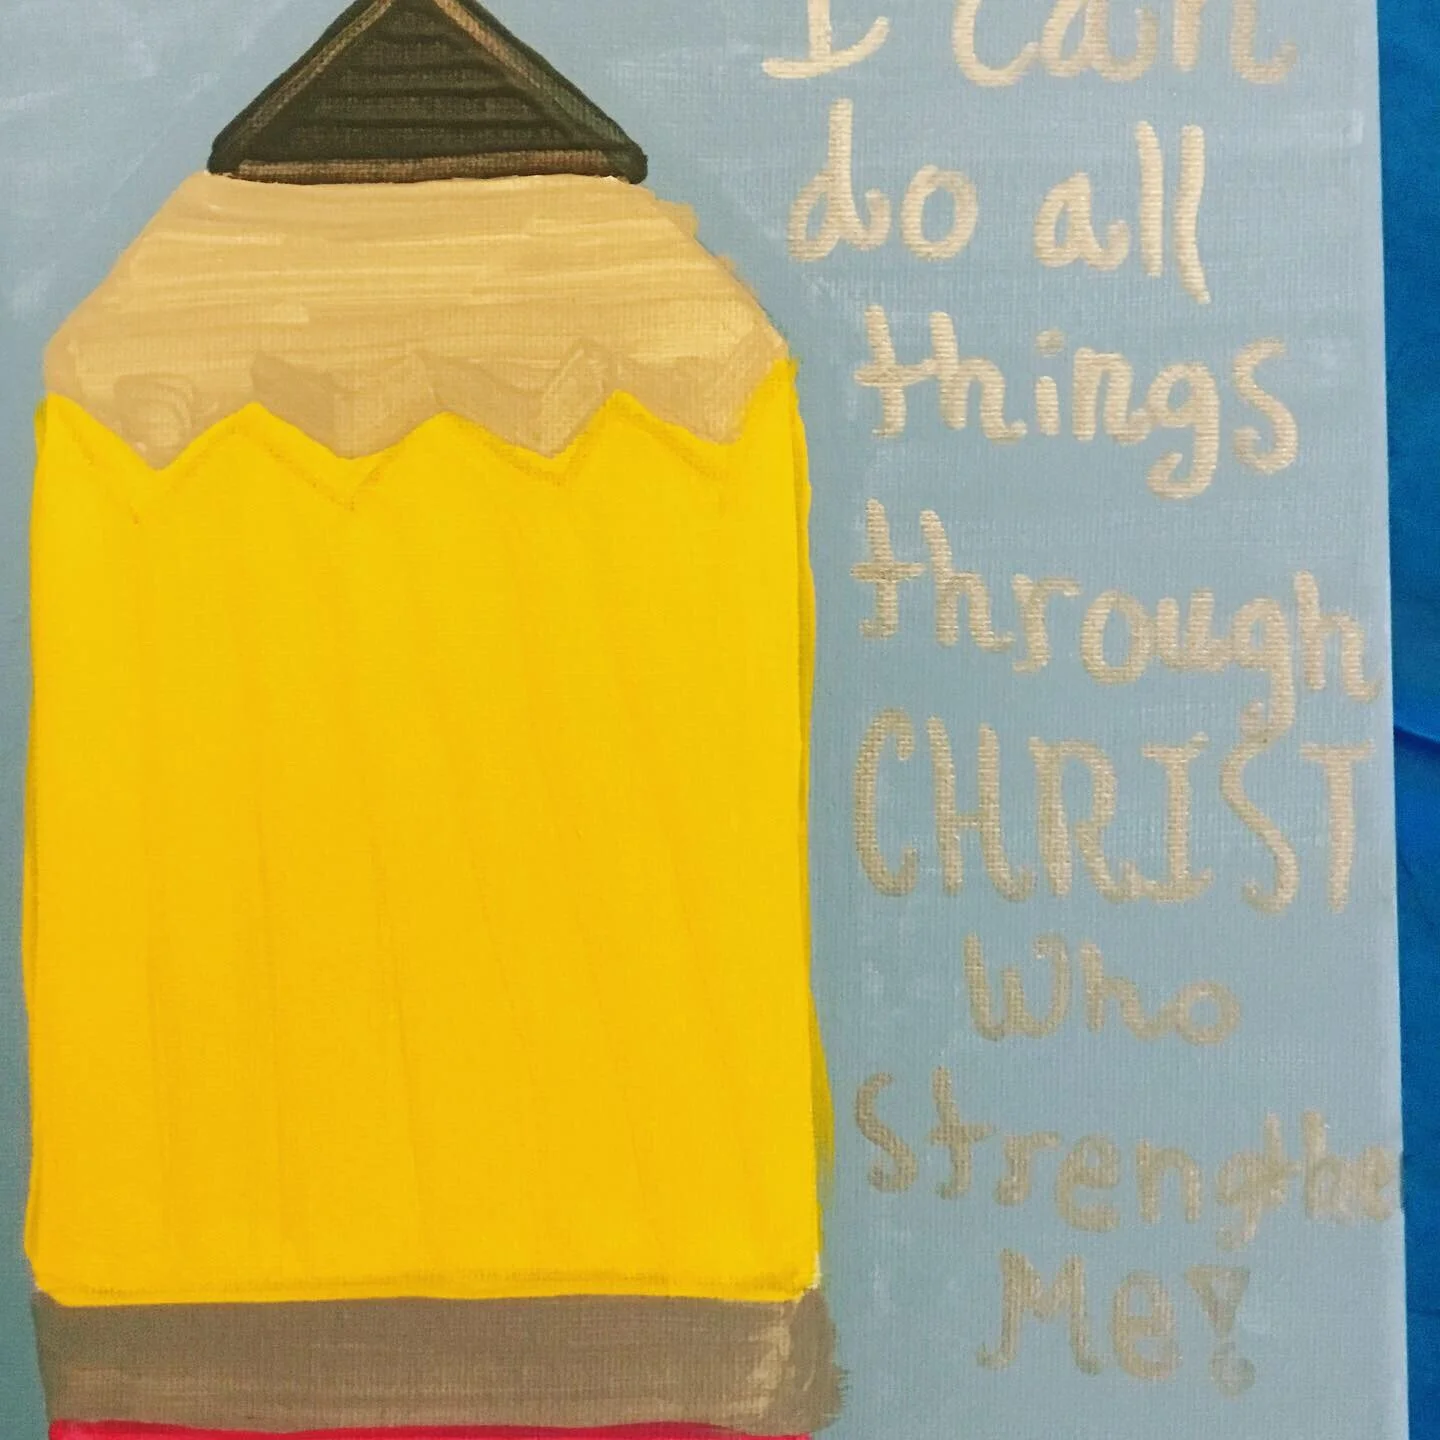 I can
do all
things
through
CHRIST
Who
Strengthe
Me!